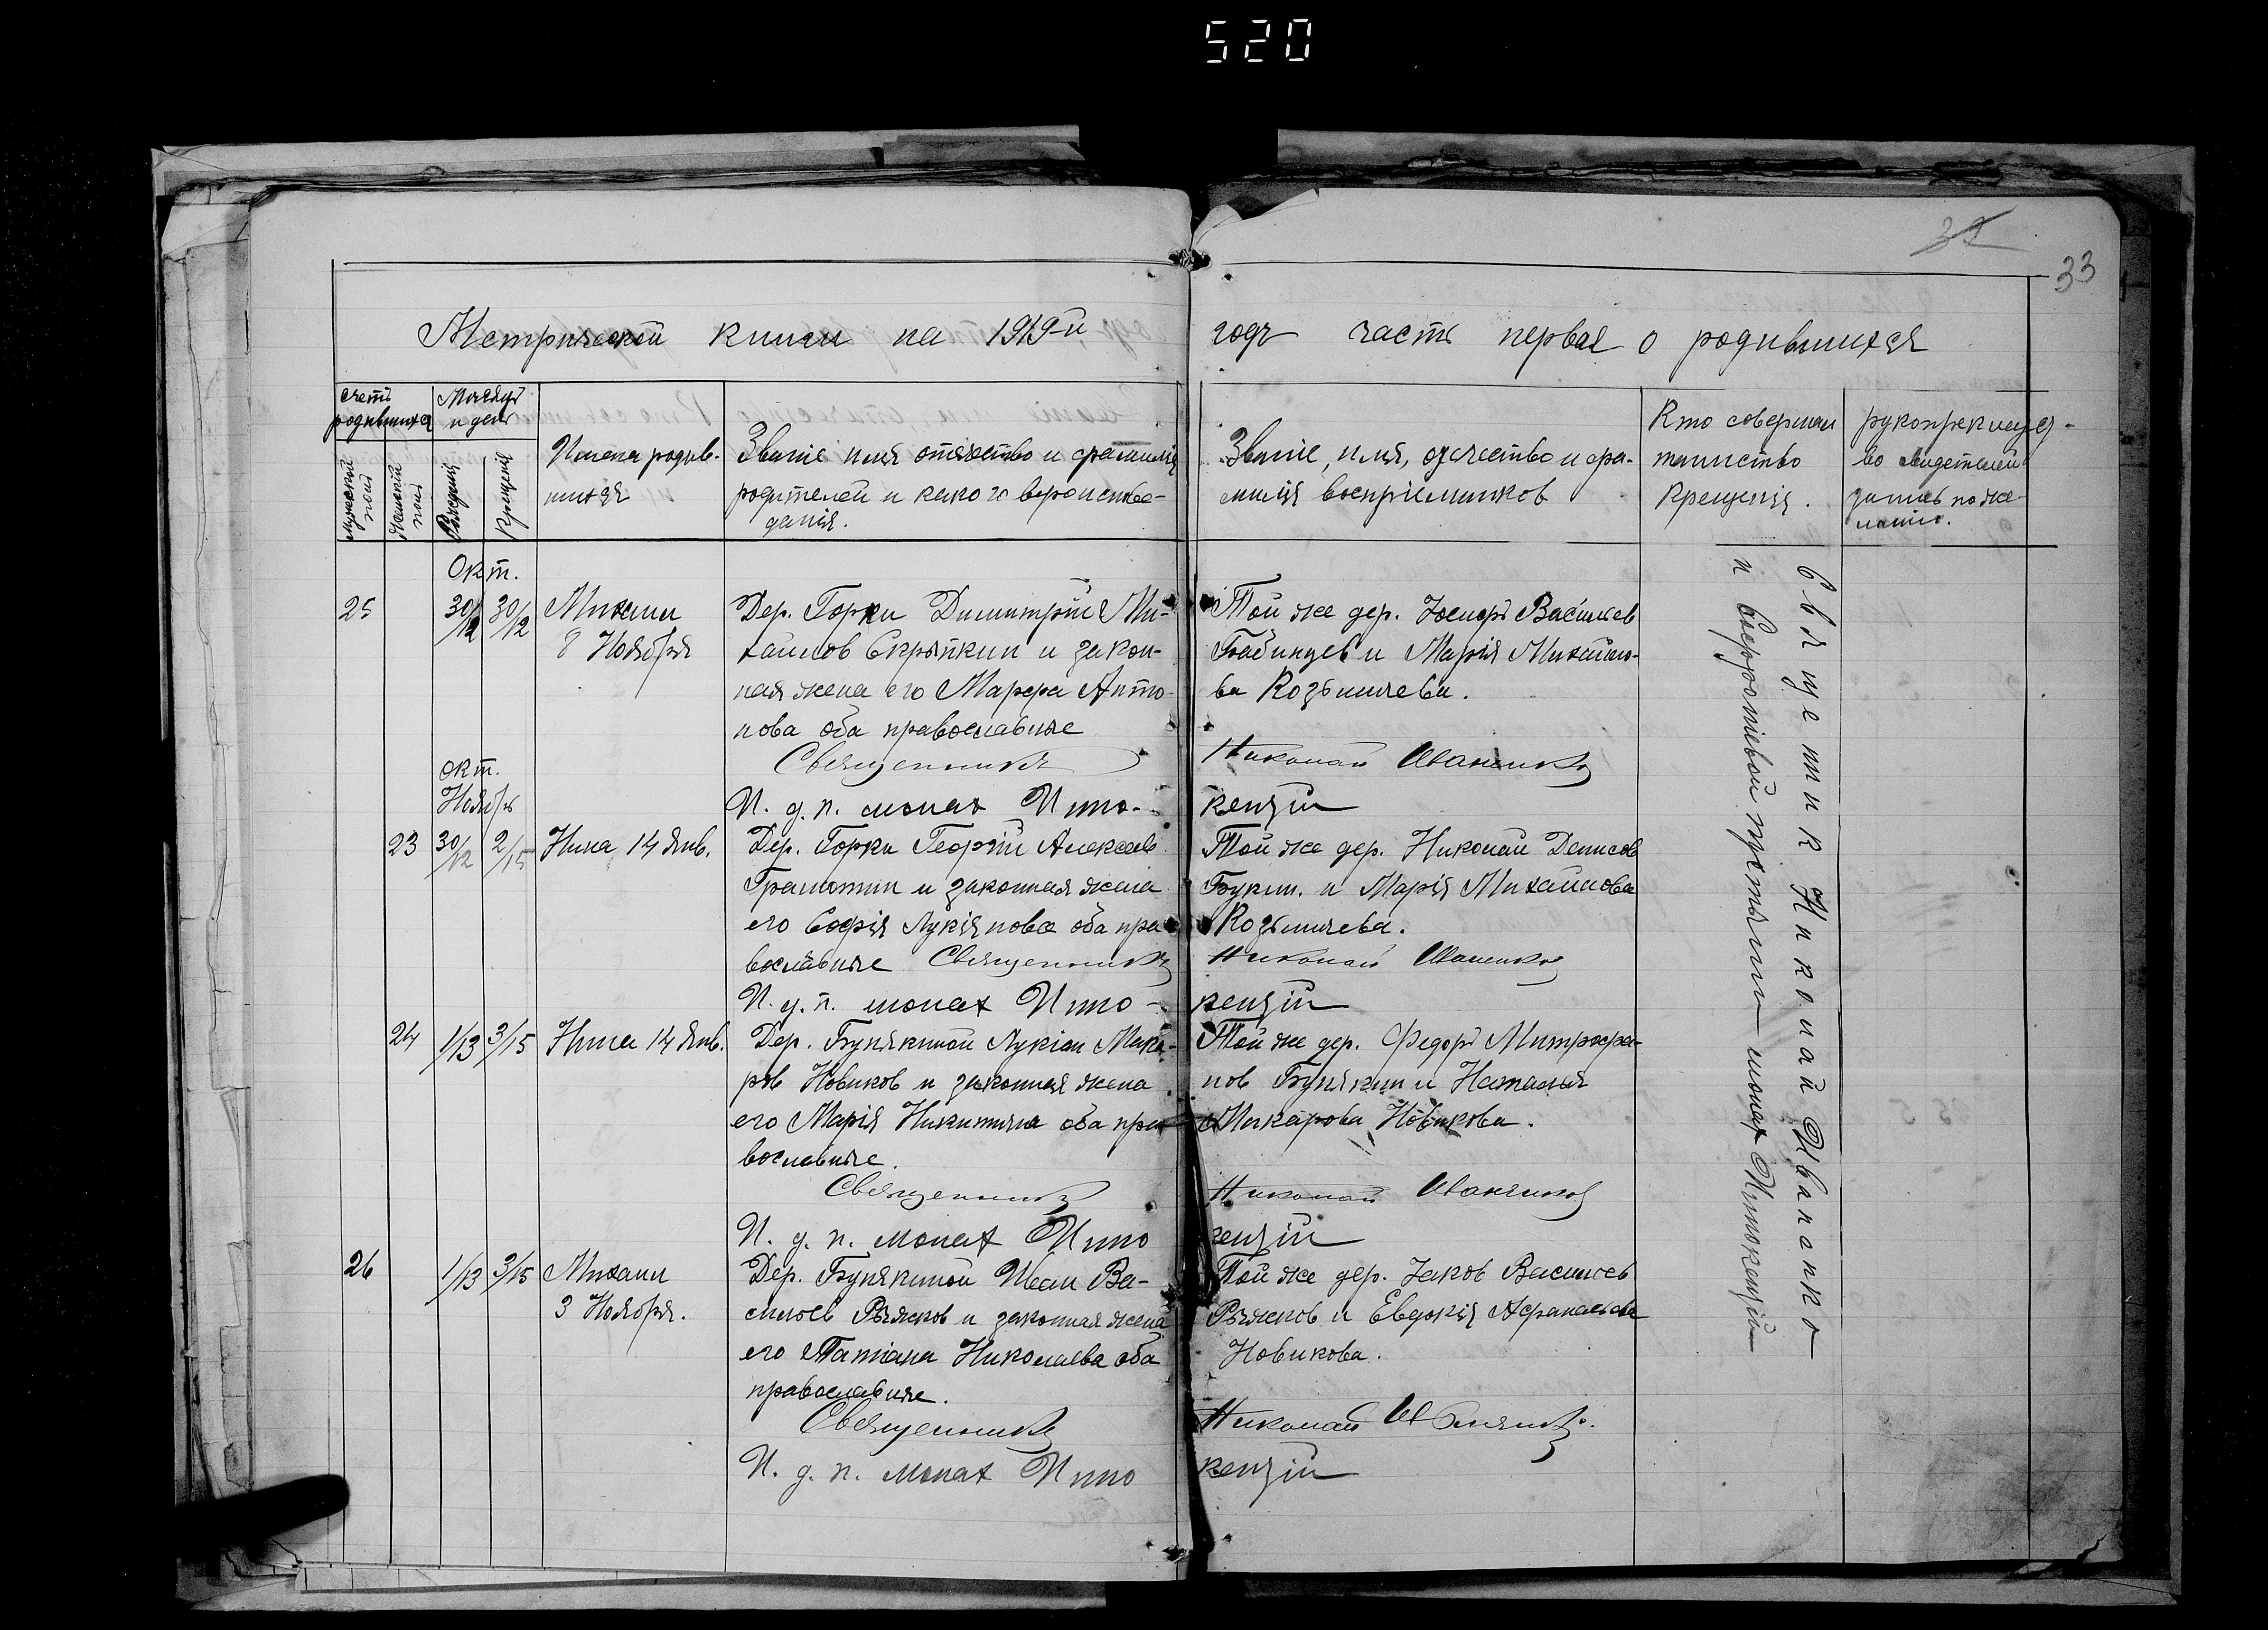 520
32
33
Метрической книги на 1919-й годъ часть первая о родившихся
счетъ родившихся
мужской полъ
женский полъ
Месяцъ и день
Рождения
Крещения
Имена родив-
шихся
Званіе имя отчество и фамилія
родителей и какого вероиспове-
данія.
Званіе, имя, отчество и фа-
милія воспріемников
Кто совершал
таинство
Крещенія.
рукоприкладст-
во свидетелей
запись по же-
ланію.
Окт.
25
30/12 30/12
Михаил
8 Ноября
Дер. Горки Димитрій Ми-
хаилов Скряпкин и закон-
ная жена его Марфа Анто-
нова оба православные
Священникъ
И. д. п. монах Инно-
Той же дер. Іосифъ Васильев
Бабинцев и Марія Михайло-
ва Козьмичева.
Николай Иваненко
кентій
окт.
Ноябрь
23
30/12 2/15
Нина 14 Янв.
Дер. Горки Георгій Алексеев
Грамотин и законная жена
его Софія Лукіянова оба пра-
вославные Священникъ
И. д. п. монах Инно-
Той же дер. Николай Денисов
Букин. и Марія Михайлова
Козьмичева.
Николай Иваненко
кентій
24
1/13 3/15
Нина 14 Янв.
Дер. Бунякиной Лукіан Мака-
ров Новиков и законная жена
его Марія Никитина оба пра-
вославные.
Священникъ
И. д. п. монах Инно
Той же дер. Федоръ Митрофа-
нов Бунякин и Наталья
Макарова Новикова.
Николай Иваненко
кентій
26
1/13 3/15
Михаил
3 Ноября.
Дер. Бунякиной Иван Ва-
сильев Ряжсков и законная жена
его Татіана Николаева оба
православные.
Священникъ
И. д. п. монах Инно
Той же дер. Іаков Васильев
Ряжсков и Евдокія Афанасьева
Новикова.
Николай Иваненко.
кентій
Священник Николай Иваненко
и монах Иннокентій